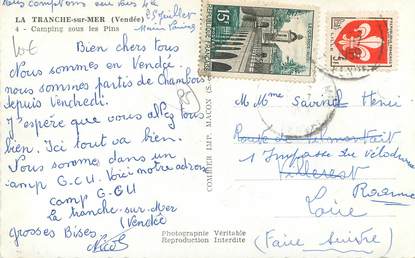 nous comptons
25 juillet
LA TRANCHE-sur-MER (Vendée)
4 - Camping sous les Pins
Bien chers tous
Nous sommes en Vendée.
nous sommes partis de Chambon
depuis Vendredi.
J'espère que vous allez tous
bien. Ici tout va bien.
Nous sommes dans un
camp G.C.U. Voici notre adresse
camp G.C.U
La tranche-sur-Mer
(Vendée
grosses Bises
Nicole
COMBIER IMP. MACON
Photographie Véritable
Reproduction Interdite
15F
M Mme Savinel Henri
Route de
1 Impasse du Vélodrome
Villerest
Roanne
Loire
(Faire suivre)